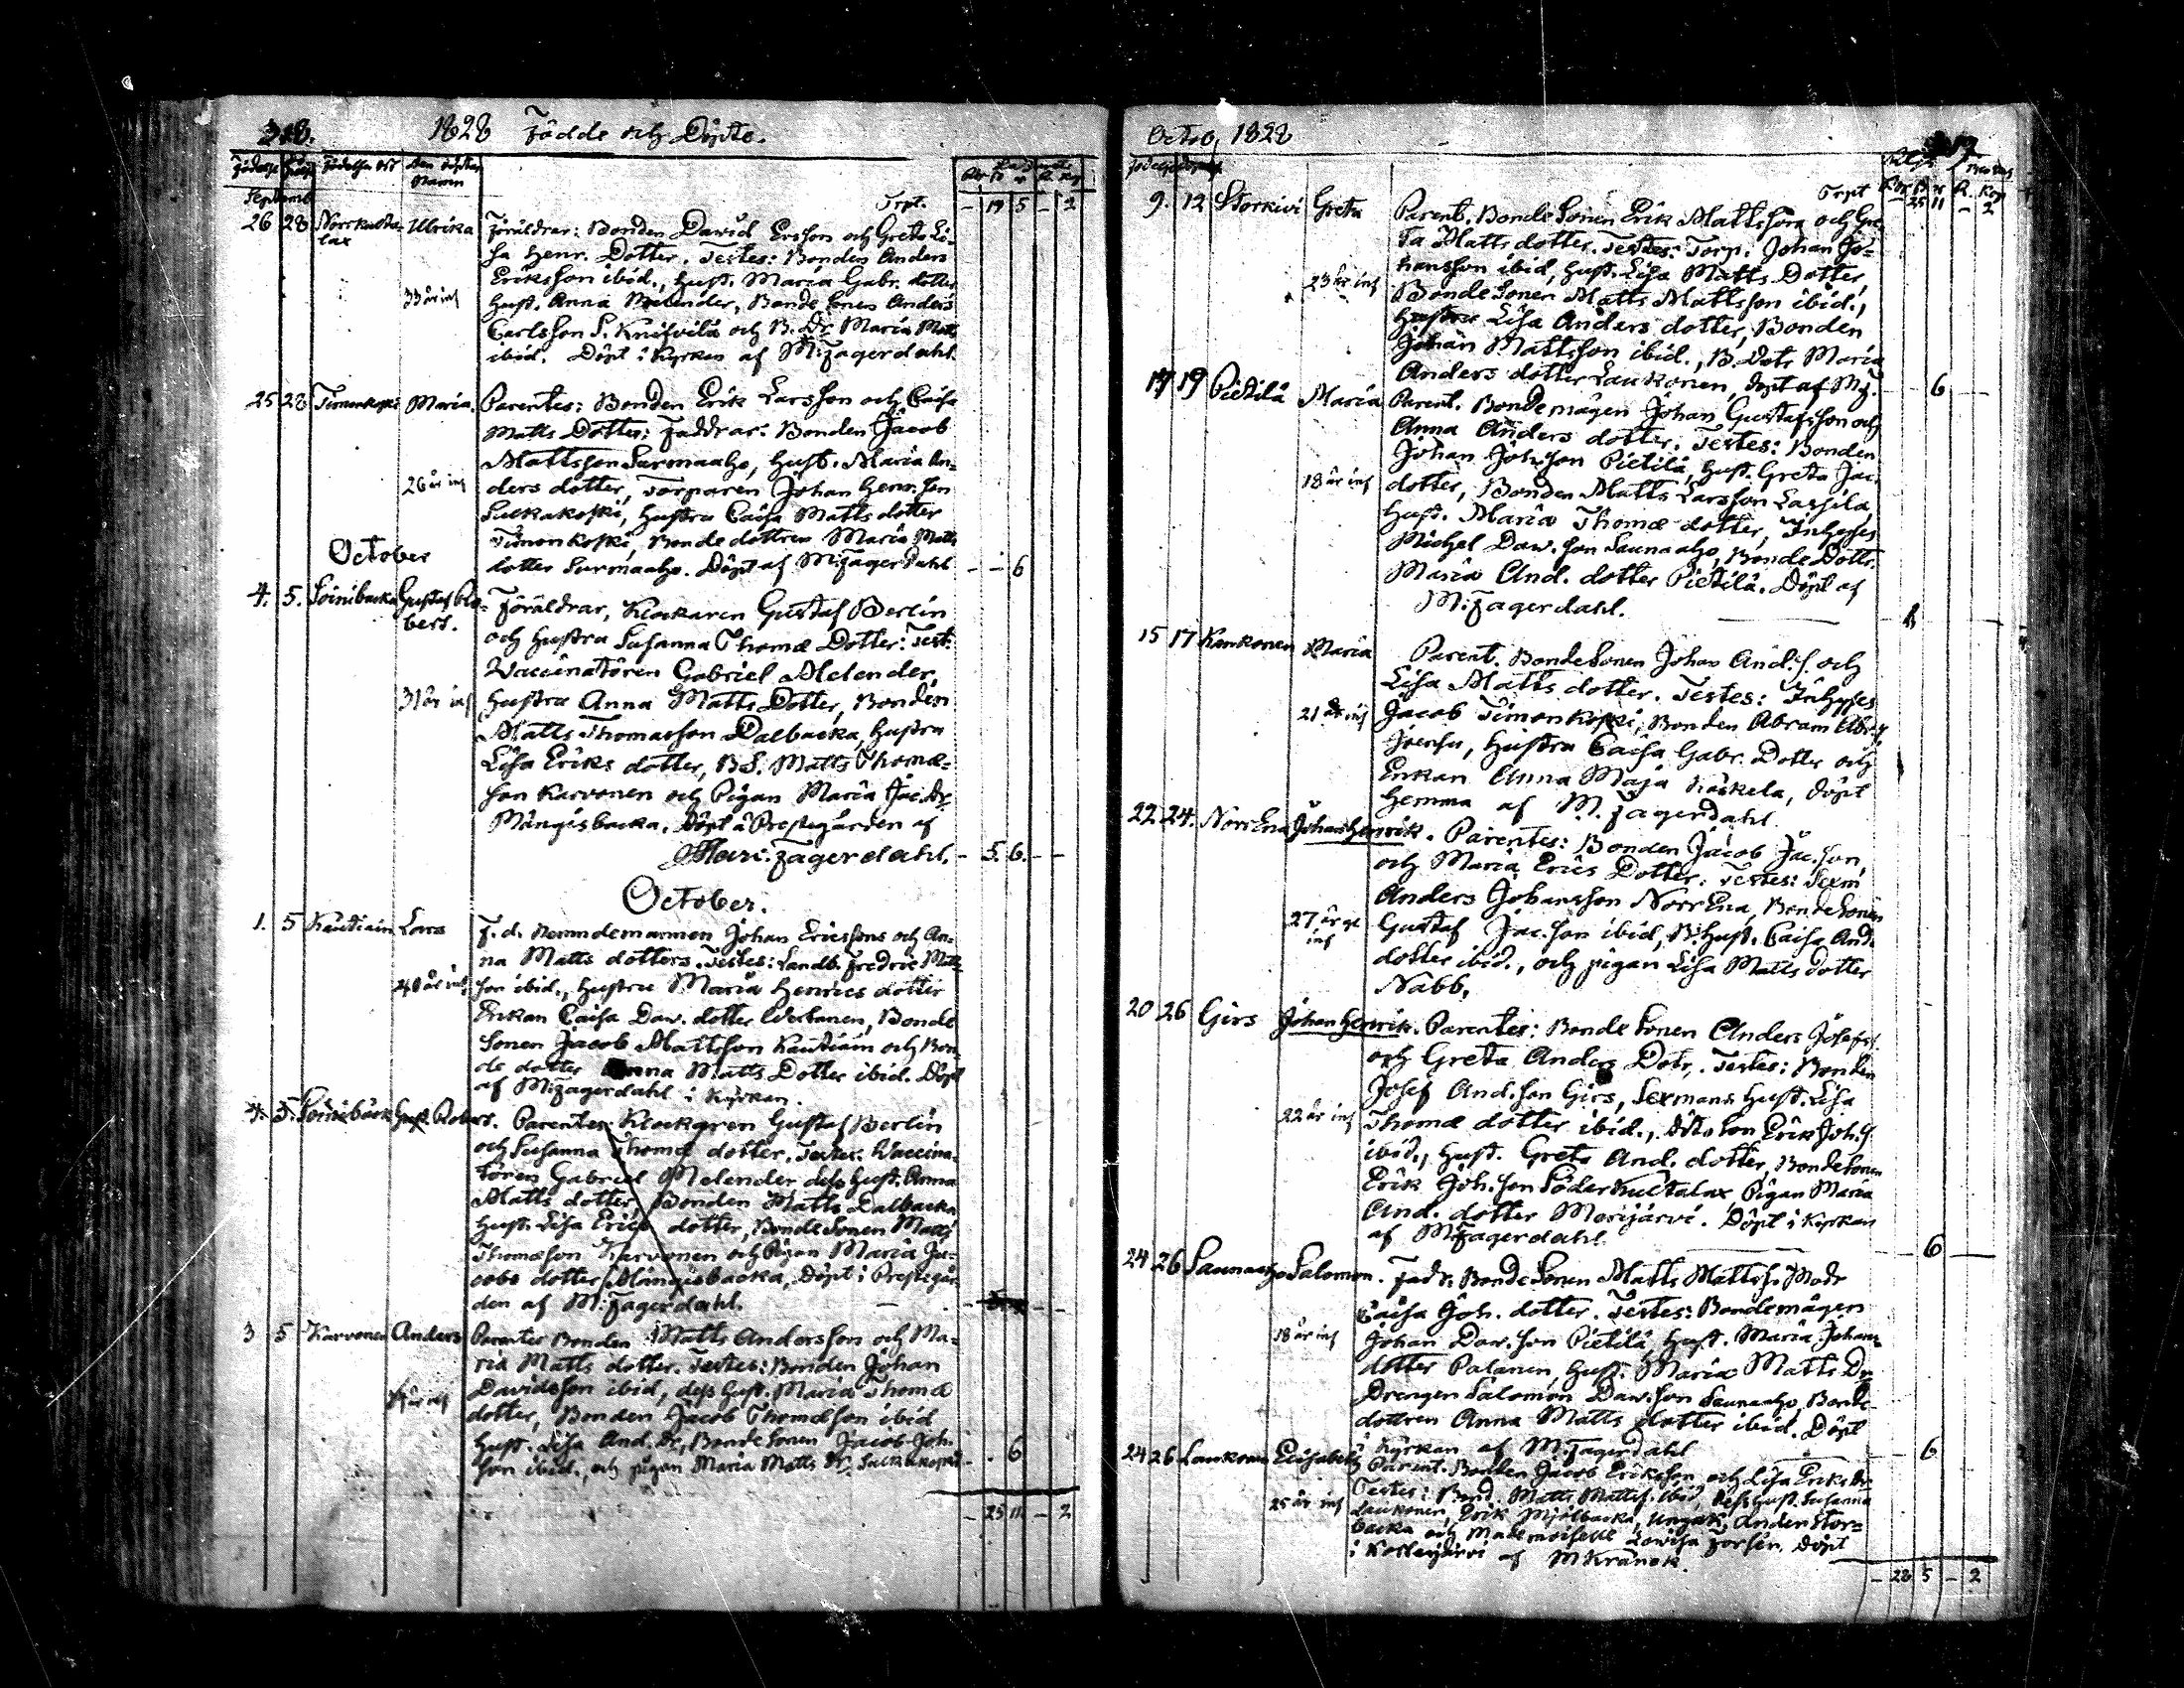 318.
1828 Födde och Döpte.
Födelse Ort
Den döptes Namn
Septemb.
Trpt. - 19 5 - 2
26 28 Norrkulta- Ulrika Föräldrar: Bonden David Ersson och Greta Li-
lax
sa Henr. Dotter. Testes: Bonden Anders
Eriksson ibid., Hust. Maria Gabr. dotter
33 år inf Hust. Anna Melender, Bonde Sonen Anders
Carlsson S. Knifvilä och B. Dr. Maria Matts
ibid. Döpt i Kyrkan af M: Fagerdahl.
25 28 Timonkoski Maria. Parentes: Bonden Erik Larsson och Caisa
Matts Dotter: Faddrar: Bonden Jacob
Mattsson Surmaaho, Hust. Maria An-
26 år inf ders dotter, Torparen Johan Henr. son
Sulkakoski, Hustru Caisa Matts dotter
Timonkoski, Bonde dottren Maria Matts
dotter Surmaaho. Döpt af M: Fagerdahl - - 6
October
4. 5. Soinibacka Gustaf Ro- Föräldrar, Klockaren Gustaf Berlin
bert.
och Hustru Susanna Thomæ Dotter: Test:
Vaccinatören Gabriel Melender,
31 år inf Hustru Anna Matts Dotter, Bonden
Matts Thomasson Dalbacka, Hustru
Lisa Eriks dotter, B.S. Matts Thomæ-
son Karvonen och Pigan Maria Jac. Dr
Mängisbacka. Döpt å Prestegården af
Mari. Fagerdahl. - 5. 6. - -
October.
1. 5 Kautiain Lars F. d. Nemndemannen Johan Ericssons och An-
na Matts dotters. Testes: Landb. Fredric Matts-
40 år inf son ibid., Hustru Maria Henrics dotter
Enkan Caisa Dav. dotter Wertanen, Bonde
Sonen Jacob Mattsson Kautiain och Bon-
de dotter Anna Matts Dotter ibid. Döpt
af M: Fagerdahl i Kyrkan.
4. 5. Soinibäck Gust. Robert. Parentes: Klockaren Gustaf Berlin
och Susanna Thomæ dotter. Testes: Vaccina-
tören Gabriel Melender dess Hust. Anna
Matts dotter, Bonden Matts Dalbacka
Hust. Lisa Erics dotter, Bonde Sonen Matts
Thomæson Karvonen och Pigan Maria Ja-
cobs dotter Mängisbacka, Döpt i Prestegår-
den af M: Fagerdahl.
3 5 Karvonen Anders Parentes Bonden Matts Andersson och Ma-
ria Matts dotter. Testes: Bonden Johan
Davidsson ibid, dess Hust. Maria Thomæ
dotter, Bonden Jacob Thomæson ibid
Hust. Lisa And. Dr, Bonde Sonen Jacob Joh.
son ibid., och pigan Maria Matts Dr. Sulkakoski - . 6
- 25 11 - 2
Octob. 1828
Trpt 25 11 - 2
9. 12 Storkivi Greta Parent. Bonde Sonen Erik Mattssons och Gre-
ta Matts dotter. Testes: Torp. Johan Jo-
23 år inf hansson ibid, Hust. Lisa Matts Dotter,
Bonde Sonen Matts Mattsson ibid.,
Hustru Lisa Anders dotter, Bonden
Johan Mattsson ibid., B. Dotr Maria
Anders dotter Laukonen, Döpt af M.F. 6
19 Pietilä Maria Parent. Bondemågen Johan Gustafsson och
Anna Anders dotter. Testes: Bonden
Johan Johsson Pietilä, Hust. Greta Jac.
18 år inf dotter, Bonden Matts Larsson Lassila,
Hust. Maria Thomæ dotter, Inhyses
Michel Dav. son Saunaaho, Bonde Dottr.
Maria And. dotter Pietilä. Döpt af
M: Fagerdahl.
15 17 Konkonen Maria Parent. Bonde Sonen Johan And. s. och
Lisa Matts dotter. Testes: Inhyses
21 år inf Jacob Timonkoski, Bonden Abram Abr.s.
Joensu, Hustru Caisa Gabr. Dotter och
Enkan Anna Maja Koskela, döpt
hemma af M. Fagerdahl.
22 24. Norr Ena Johan Henrik. Parentes: Bonden Jacob Jac. son,
och Maria Erics Dotter. Testes: Sexm
Anders Johansson Norr Ena, Bonde Sonen
27 år ge Gustaf Jac. son ibid, B. Hust. Caisa And.
inf
dotter ibid., och pigan Lisa Matts dotter
Nabb,
20 26 Girs Johan Henrik. Parentes: Bonde Sonen Anders Josefss.
och Greta Anders Dotr. Testes: Bonden
Josef And. son Girs, Sexmans Hust. Lisa
22 år inf Thomæ dotter ibid., Dito Son Erik Joh. s.
ibid., Hust. Greta And. dotter, Bonde Sonen
Erik Joh. son Söderkultalax, Pigan Maria
And. dotter Morijärvi. Döpt i Kyrkan
af M: Fagerdahl. 6
24 26 Saunaaho Salomon. Fadr. Bonde Sonen Matts Mattss. Modr
Caisa Joh. dotter. Testes: Bondemågen
18 år inf Johan Dav. son Pietilä, Hust. Maria Johans
dotter Palanen, Hust. Maria Matts Dr
Drengen Salomon Dav. son Saunaaho, Bonde-
dottren Anna Matts dotter ibid. Döpt
i Kyrkan af M: Fagerdahl 6
24 26 Laukonen Elisabeth Parent. Bonden Jacob Eriksson och Lisa Eriks Dr
Testes: Bond. Matts Mattss. ibid, dess Hust. Susanna
25 år inf Laukonen, Erik Mjölbacka, Ungk. Anders Stor-
backa och Mademoiselle Lovisa Forsén, Döpt
i af M Kranck.
- 28 5 - 2